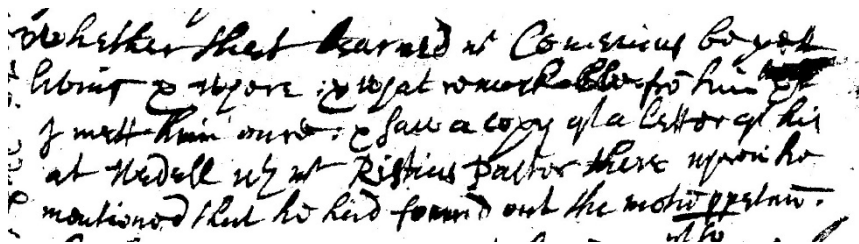 Whether that learned mr Comenius be yet
living & where : & what remarkable frō him
I mett him once : & saw a copy of a letter of his
at Redell wth mr Ristius Pastor there wherein he
mentioned that he had found out the motū ppetuū.